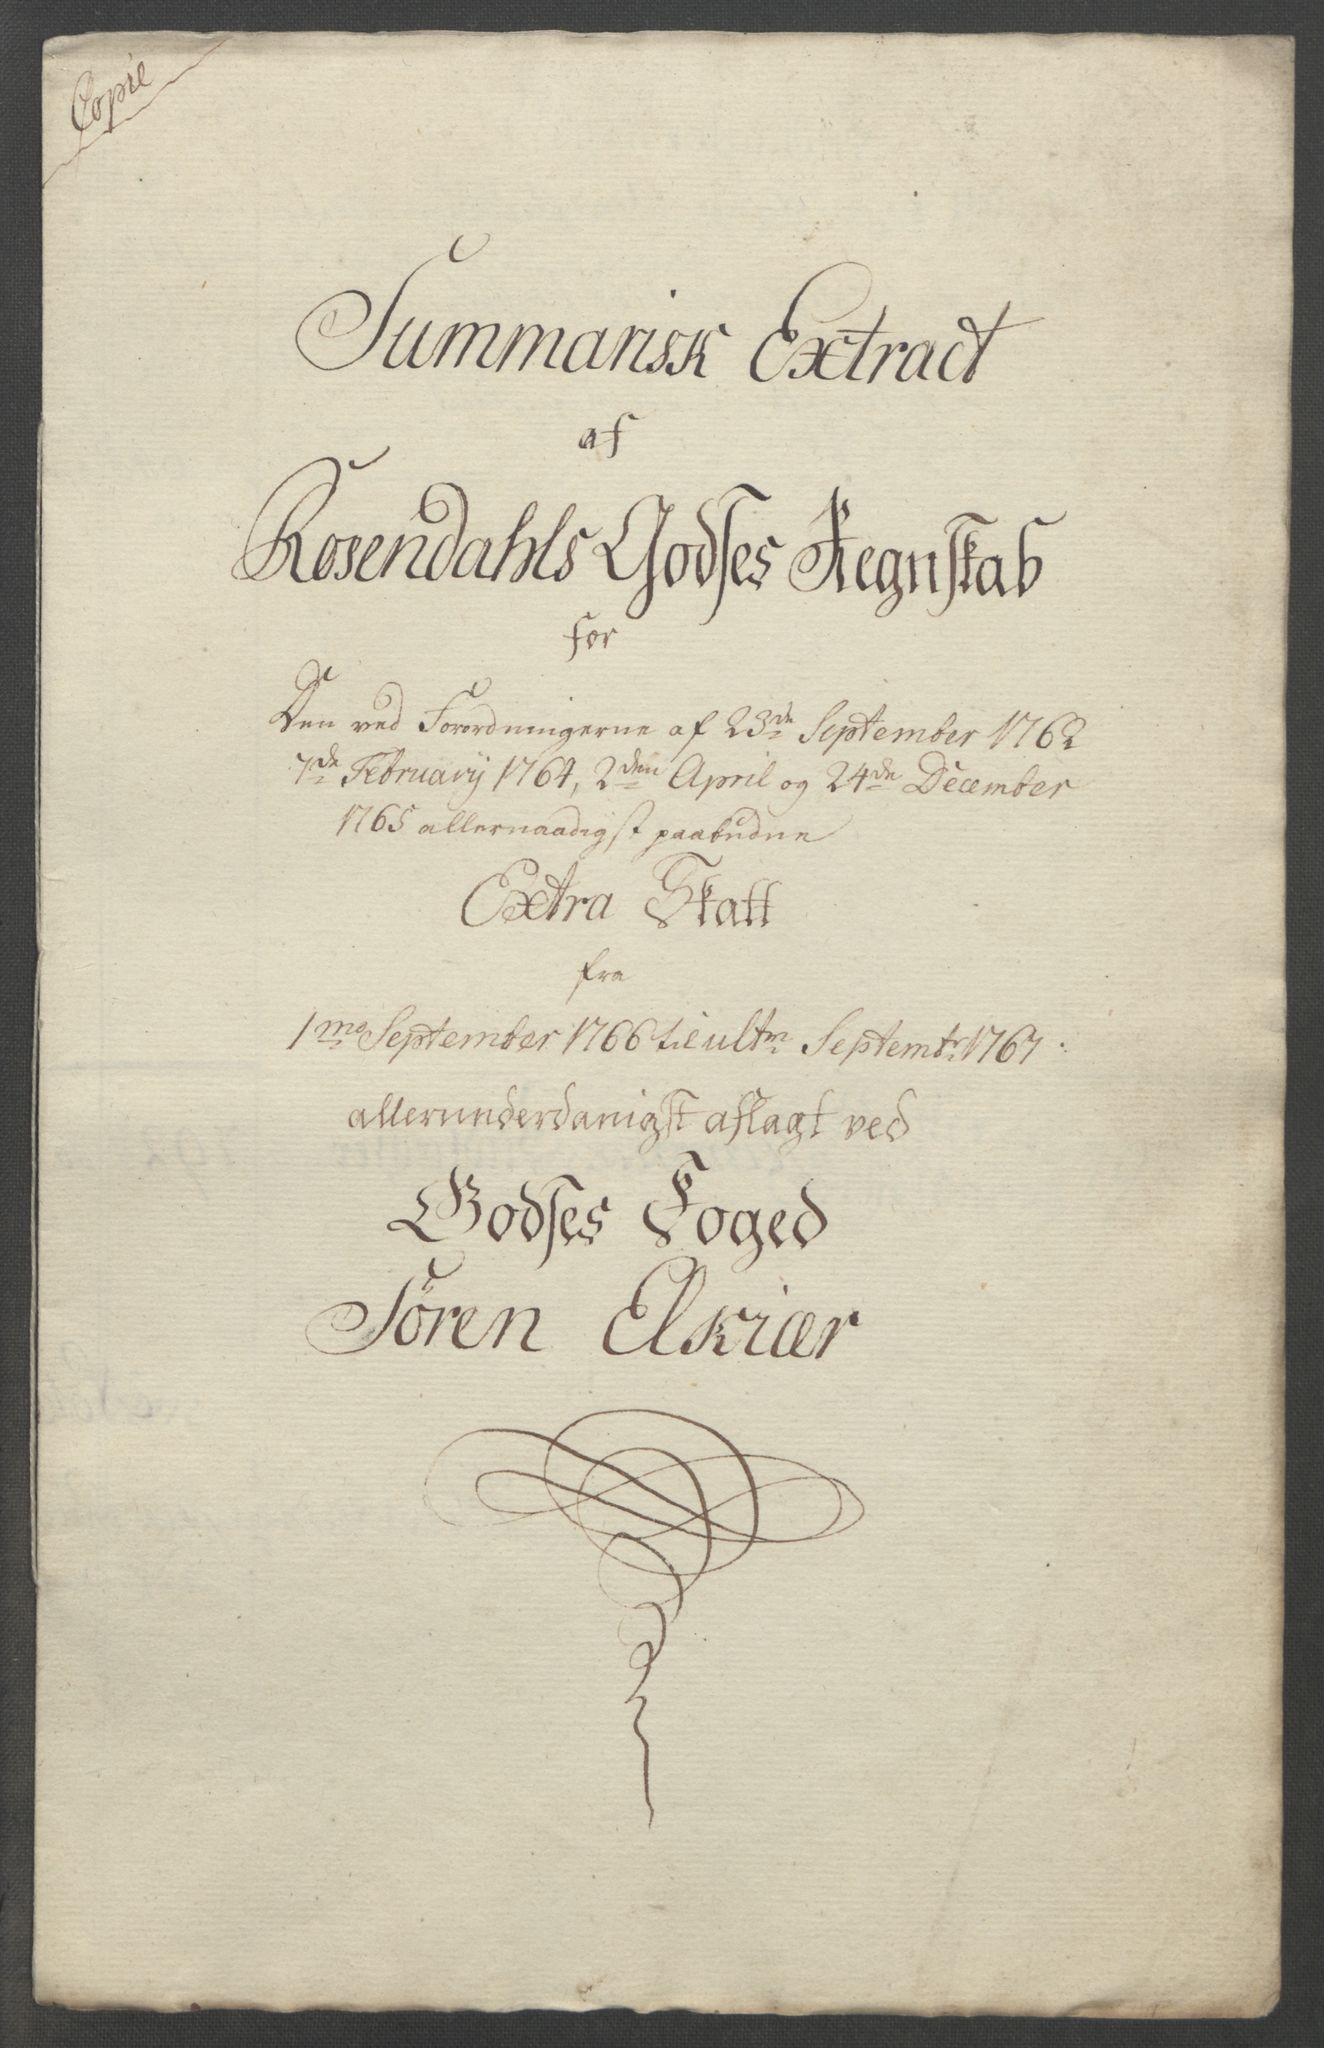 Copie
Summarisk Extract
af
Rosendahls Godses Regnskab
for
Den ved Forordningerne af 23de September 1762
7de February 1764, 2den April og 24de December
1765 allernaadigst paabudne
Extra Skatt
fra
1mo September 1766 til ultm Septembr 1767.
allerunderdanigst aflagt ved
Godses Foged
Søren Elkiær